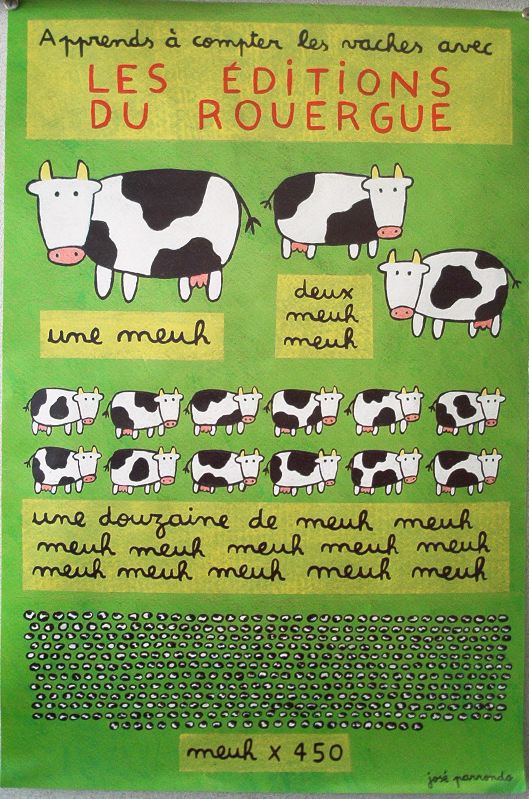 Apprends à compter les vaches avec
LES ÉDITIONS
DU ROUERGUE
une meuh
deux
meuh
meuh
une douzaine de meuh meuh
meuh meuh meuh meuh meuh
meuh meuh meuh meuh meuh
meuh x 450
josé parrondo